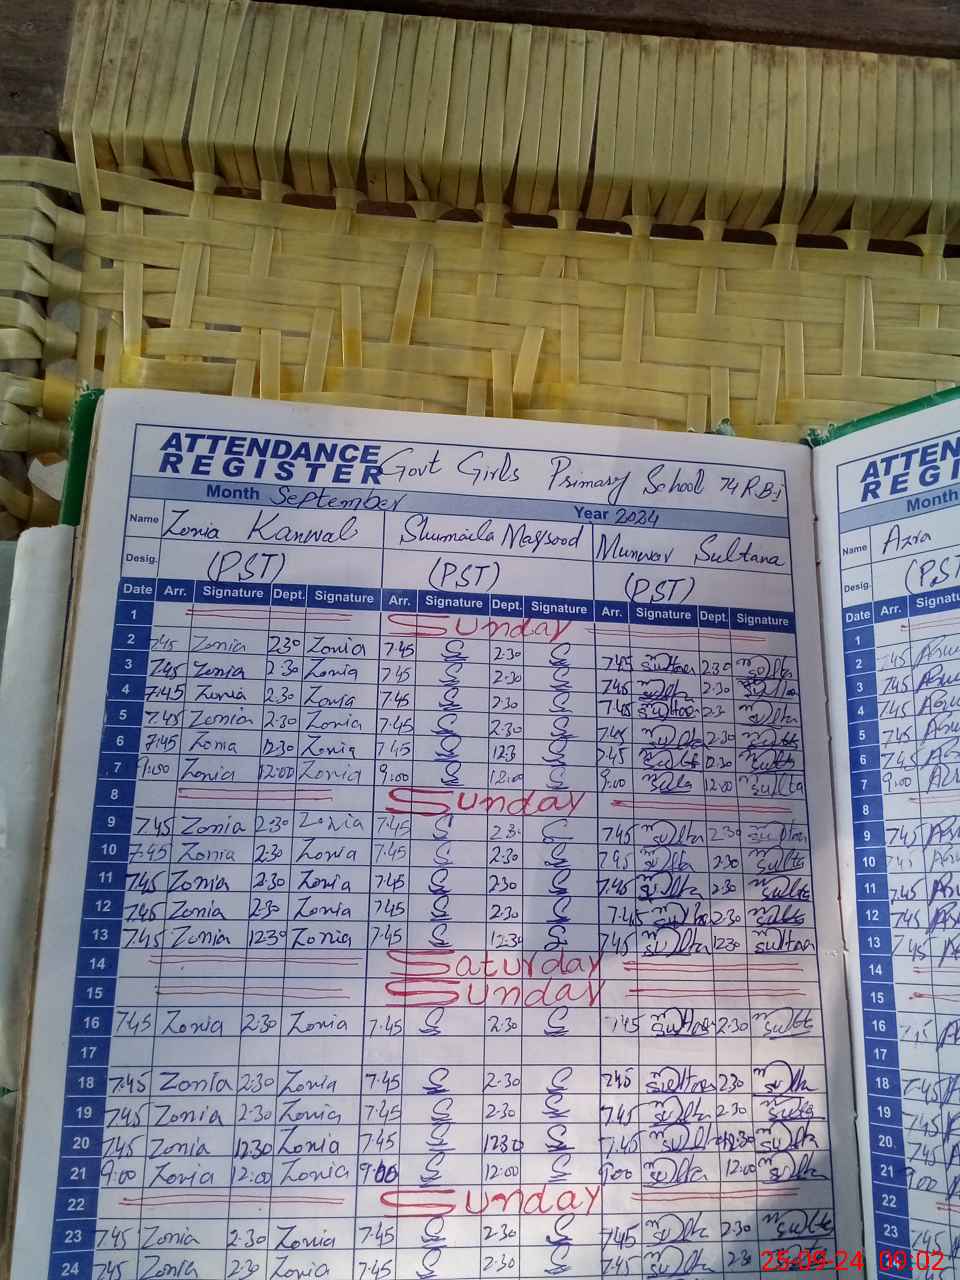 ATTENDANCE REGISTER Govt Girls Primary School 74 R.B.j
Month September Year 2024
Name Zonia Kanwal Shumaila Maqsood Munwar Sultana
Desig. (PST) (PST) (PST)
Date Arr. Signature Dept. Signature Arr. Signature Dept. Signature Arr. Signature Dept. Signature
1 Sunday
2 7:45 Zonia 2:30 Zonia 7:45 S 2:30 S 7:45 2:30
3 7:45 Zonia 2:30 Zonia 7:45 S 2:30 S 7:45 2:30
4 7:45 Zonia 2:30 Zonia 7:45 S 2:30 S 7:45 2:3
5 7:45 Zonia 2:30 Zonia 7:45 S 2:30 S 7:45 2:30
6 7:45 Zonia 12:30 Zonia 7:45 S 12:3 S 7:45 12:30
7 9:00 Zonia 12:00 Zonia 9:00 S 12:00 S 9:00 12:00
8 Sunday
9 7:45 Zonia 2:30 Zonia 7:45 S 2:3 S 7:45 2:30
10 7:45 Zonia 2:30 Zonia 7:45 S 2:30 S 7:45 2:30
11 7:45 Zonia 2:30 Zonia 7:45 S 2:30 S 7:45 2:30
12 7:45 Zonia 2:30 Zonia 7:45 S 2:30 S 7:45 2:30
13 7:45 Zonia 12:30 Zonia 7:45 S 12:30 S 7:45 12:30
14 Saturday
15 Sunday
16 7:45 Zonia 2:30 Zonia 7:45 S 2:30 S 7:45 2:30
17
18 7:45 Zonia 2:30 Zonia 7:45 S 2:30 S 7:45 2:30
19 7:45 Zonia 2:30 Zonia 7:45 S 2:30 S 7:45 2:30
20 7:45 Zonia 12:30 Zonia 7:45 S 12:30 S 7:45 12:30
21 9:00 Zonia 12:00 Zonia 9:00 S 12:00 S 9:00 12:00
22 Sunday
23 7:45 Zonia 2:30 Zonia 7:45 S 2:30 S 7:45 2:30
24 7:45 Zonia 2:30 Zonia 7:45 S 2:30 S 7:45 2:30
Month
Name Azra
Desig. (PST
Date Arr.
1
2 7:45
3 7:45
4 7:45
5 7:45
6 7:45
7 9:00
8
9 7:45
10 7:45
11 7:45
12 7:45
13 7:45
14
15
16 7:45
17
18 7:45
19 7:45
20 7:45
21 9:00
22
23 7:45
25-09-24 09:02